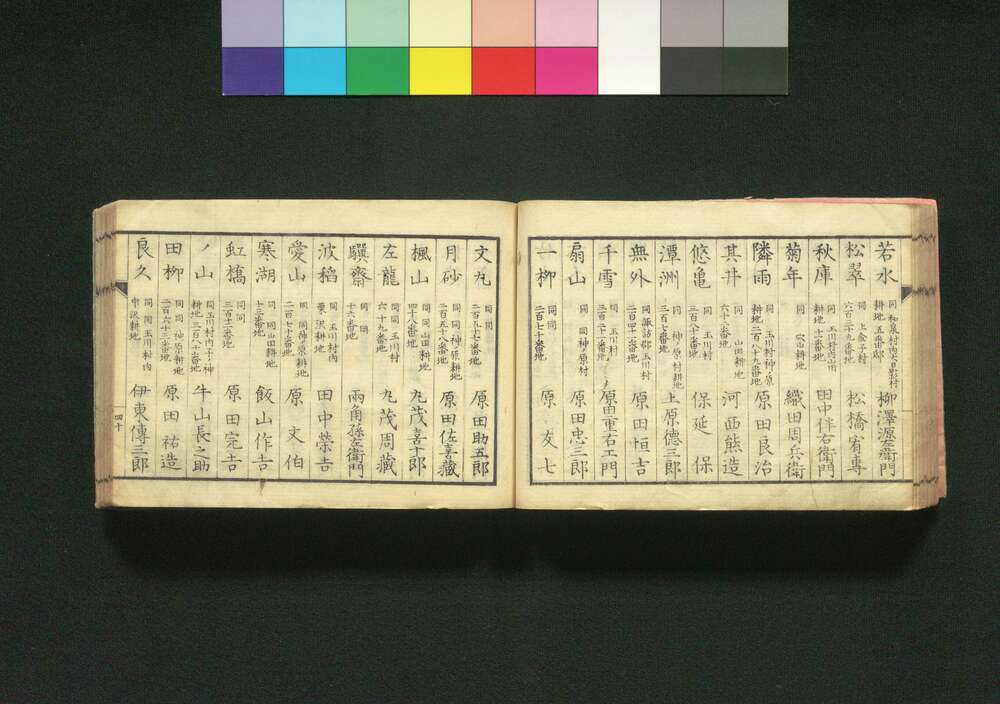 若水 同 和泉村内春日影村耕地 五番邸 柳澤源左衛門
松翠 同 上金子村 六百三十九番地 松橋宥專
秋庫 同 玉川村内山田耕地 十番地 田中伴右衛門
菊年 同 穴山耕地 織田周兵衛
隣雨 同 玉川村神ノ原耕地 二百八十九番地 原田良治
其井 同 山田耕地 六十三番地 河西熊造
悠亀 同 玉川村 三百八十番地 保延保
潭洲 同 神ノ原村耕地 三百七番地 上原德三郎
無外 同 諏訪郡玉川村 二百四十二番地 原田恒吉
千雪 同 玉川村 原田重右エ門
扇山 同 同 神原村 原田忠三郎
一柳 同 同 二百七十番地 原友七
文丸 同 同 二百五十七番地 原田助五郎
月砂 同 同 神ノ原耕地 二百五十八番地 原田佐喜藏
楓山 同 同 山田耕地 四十八番地 丸茂喜十郎
左龍 同 同 玉川村 六十九番地 丸茂周藏
驥齋 同 同 十六番地 兩角孫左衛門
波稻 同 玉川村内粟沢耕地 田中榮吉
愛山 同 同 神ノ原耕地 二百七十番地 原文伯
寒湖 同 同 山田耕地 七十三番地 飯山作吉
虹橋 同 同 三百十二番地 原田完吉
ノ山 同 玉川村内子ノ神耕地 三百八十二番地 牛山長之助
田柳 同 同 神ノ原耕地 二百六十三番地 原田祐造
良久 同 同 玉川村内中沢耕地 伊東傳三郎
四十